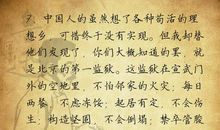 7、中国人的虽然想了各种苟活的理
想乡，可惜终于没有实现。但我却替
他们发现了，你们大概知道的罢，就
是北京的第一监狱。这监狱在宣武门
外的空地里，不怕邻家的火灾；每日
两餐，不虑冻馁；起居有定，不会伤
生；构造坚固，不会倒塌；禁卒管